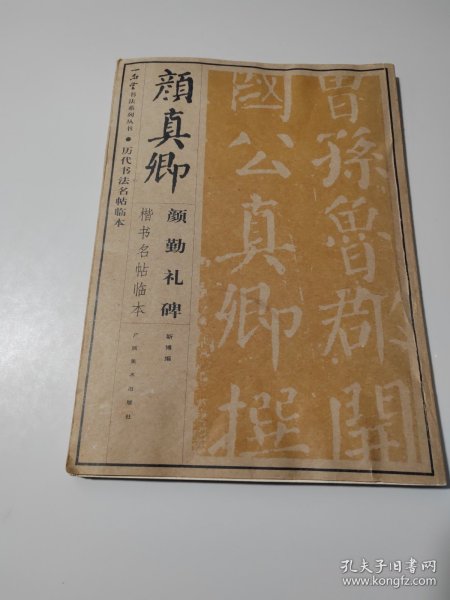 一石堂书法系列丛书●历代书法名帖临本
顔真卿
颜勤礼碑
楷书名帖临本
靳博编
广西美术出版社
曾孫魯郡開
國公真卿撰
孔夫子旧书网
www.kongfz.com